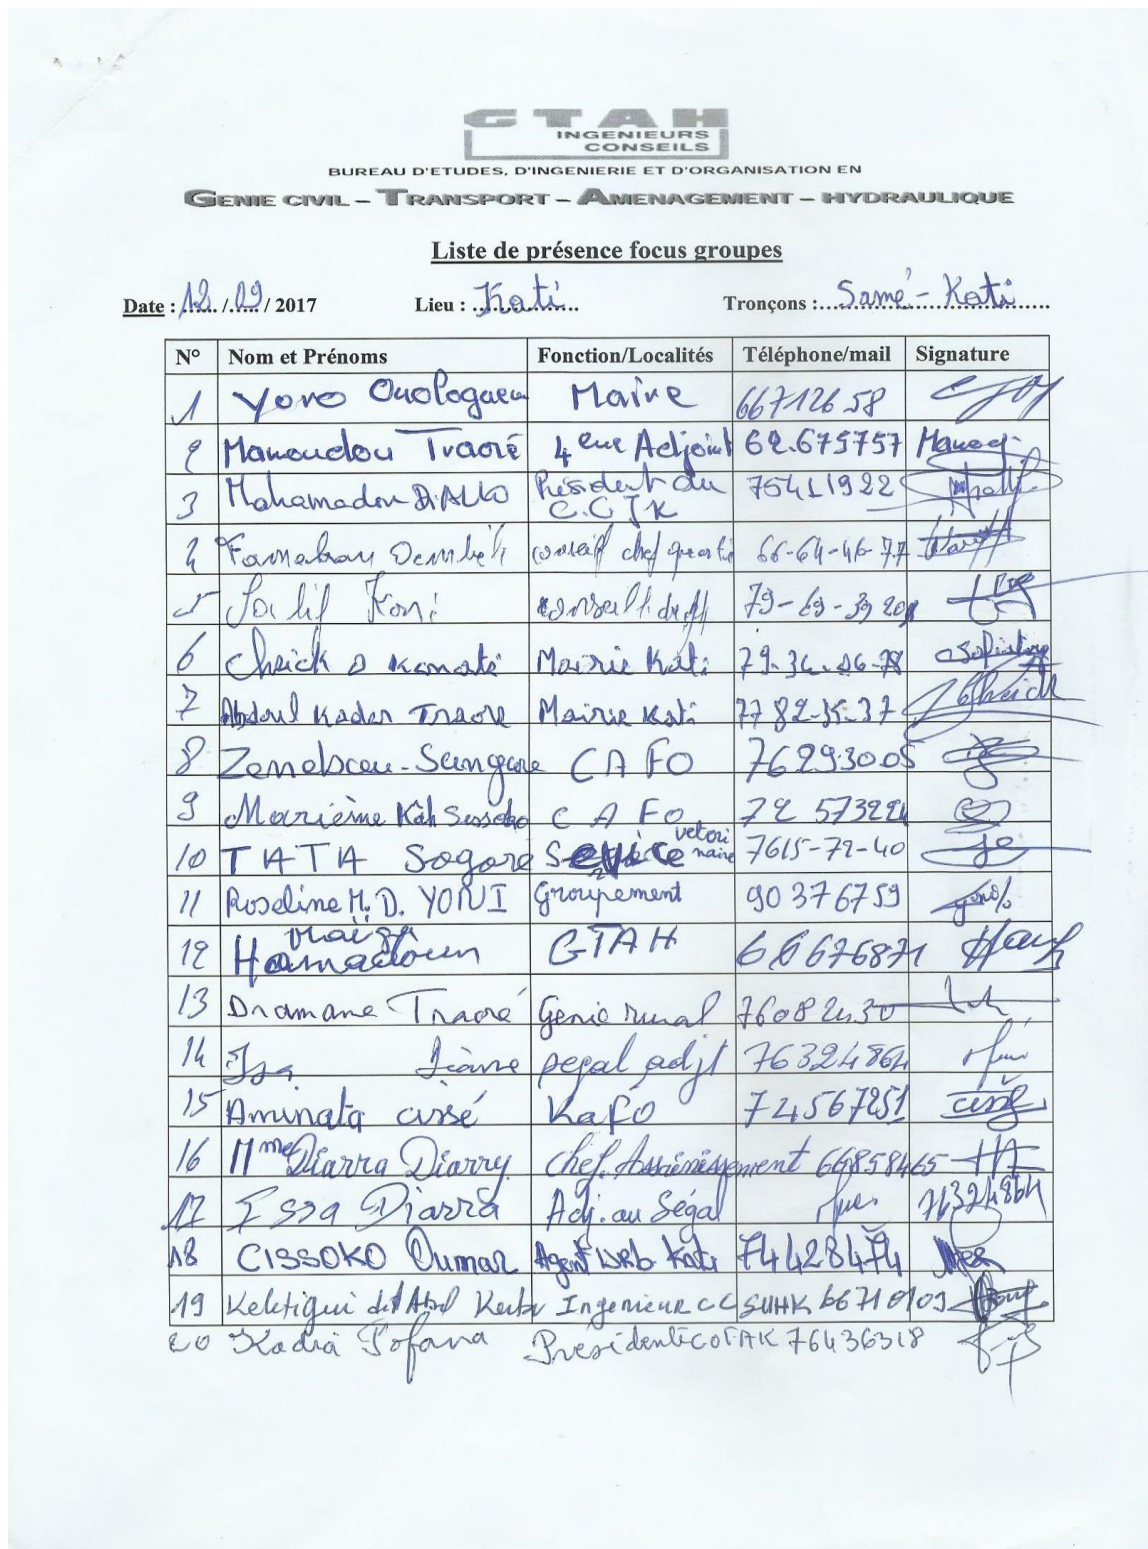 GTAH
INGENIEURS
CONSEILS
BUREAU D'ETUDES, D'INGENIERIE ET D'ORGANISATION EN
GENIE CIVIL – TRANSPORT – AMENAGEMENT – HYDRAULIQUE
Liste de présence focus groupes
Date : 12 / 09 / 2017 Lieu : Kati Tronçons : Samé - Kati
N° Nom et Prénoms Fonction/Localités Téléphone/mail Signature
1 Yoro Ouologuem Maire 66712658
2 Mamoudou Traoré 4 eme Adjoint 62.675757
3 Mahamadou DIALLO Président du 75411922
C.C J K
4 Dembélé conseil chef quartié 66-64-46-77
5 Salif Koné 79-69-39 20
6 Cheick O Konaté Mairie Kati 79-36-06-78
7 Abdoul Kader Traore Mairie Kati 77 82-35-37
8 CAFO 76293005
9 Marième CAFO 72 573224
10 TATA Sogoré Sevice vetori 7615-72-40
naire
11 Roseline M. D. YONI Groupement 90376759
Maiga
12 Hamadoun GTAH 66676871
13 Dramane Traoré Genie rural 76082430
14 Isa adjt 76324864
15 Aminata cissé KaFO 74567251
16 Mme Diarra Diarry chef. Assainissement 66858465
17 Issa Diarra Adj. au Ségal 76324864
18 CISSOKO Oumar Agent Kati 74428474
19 dit Ingenieur 66710109
20 Kadia Fofana Présidente 76436318